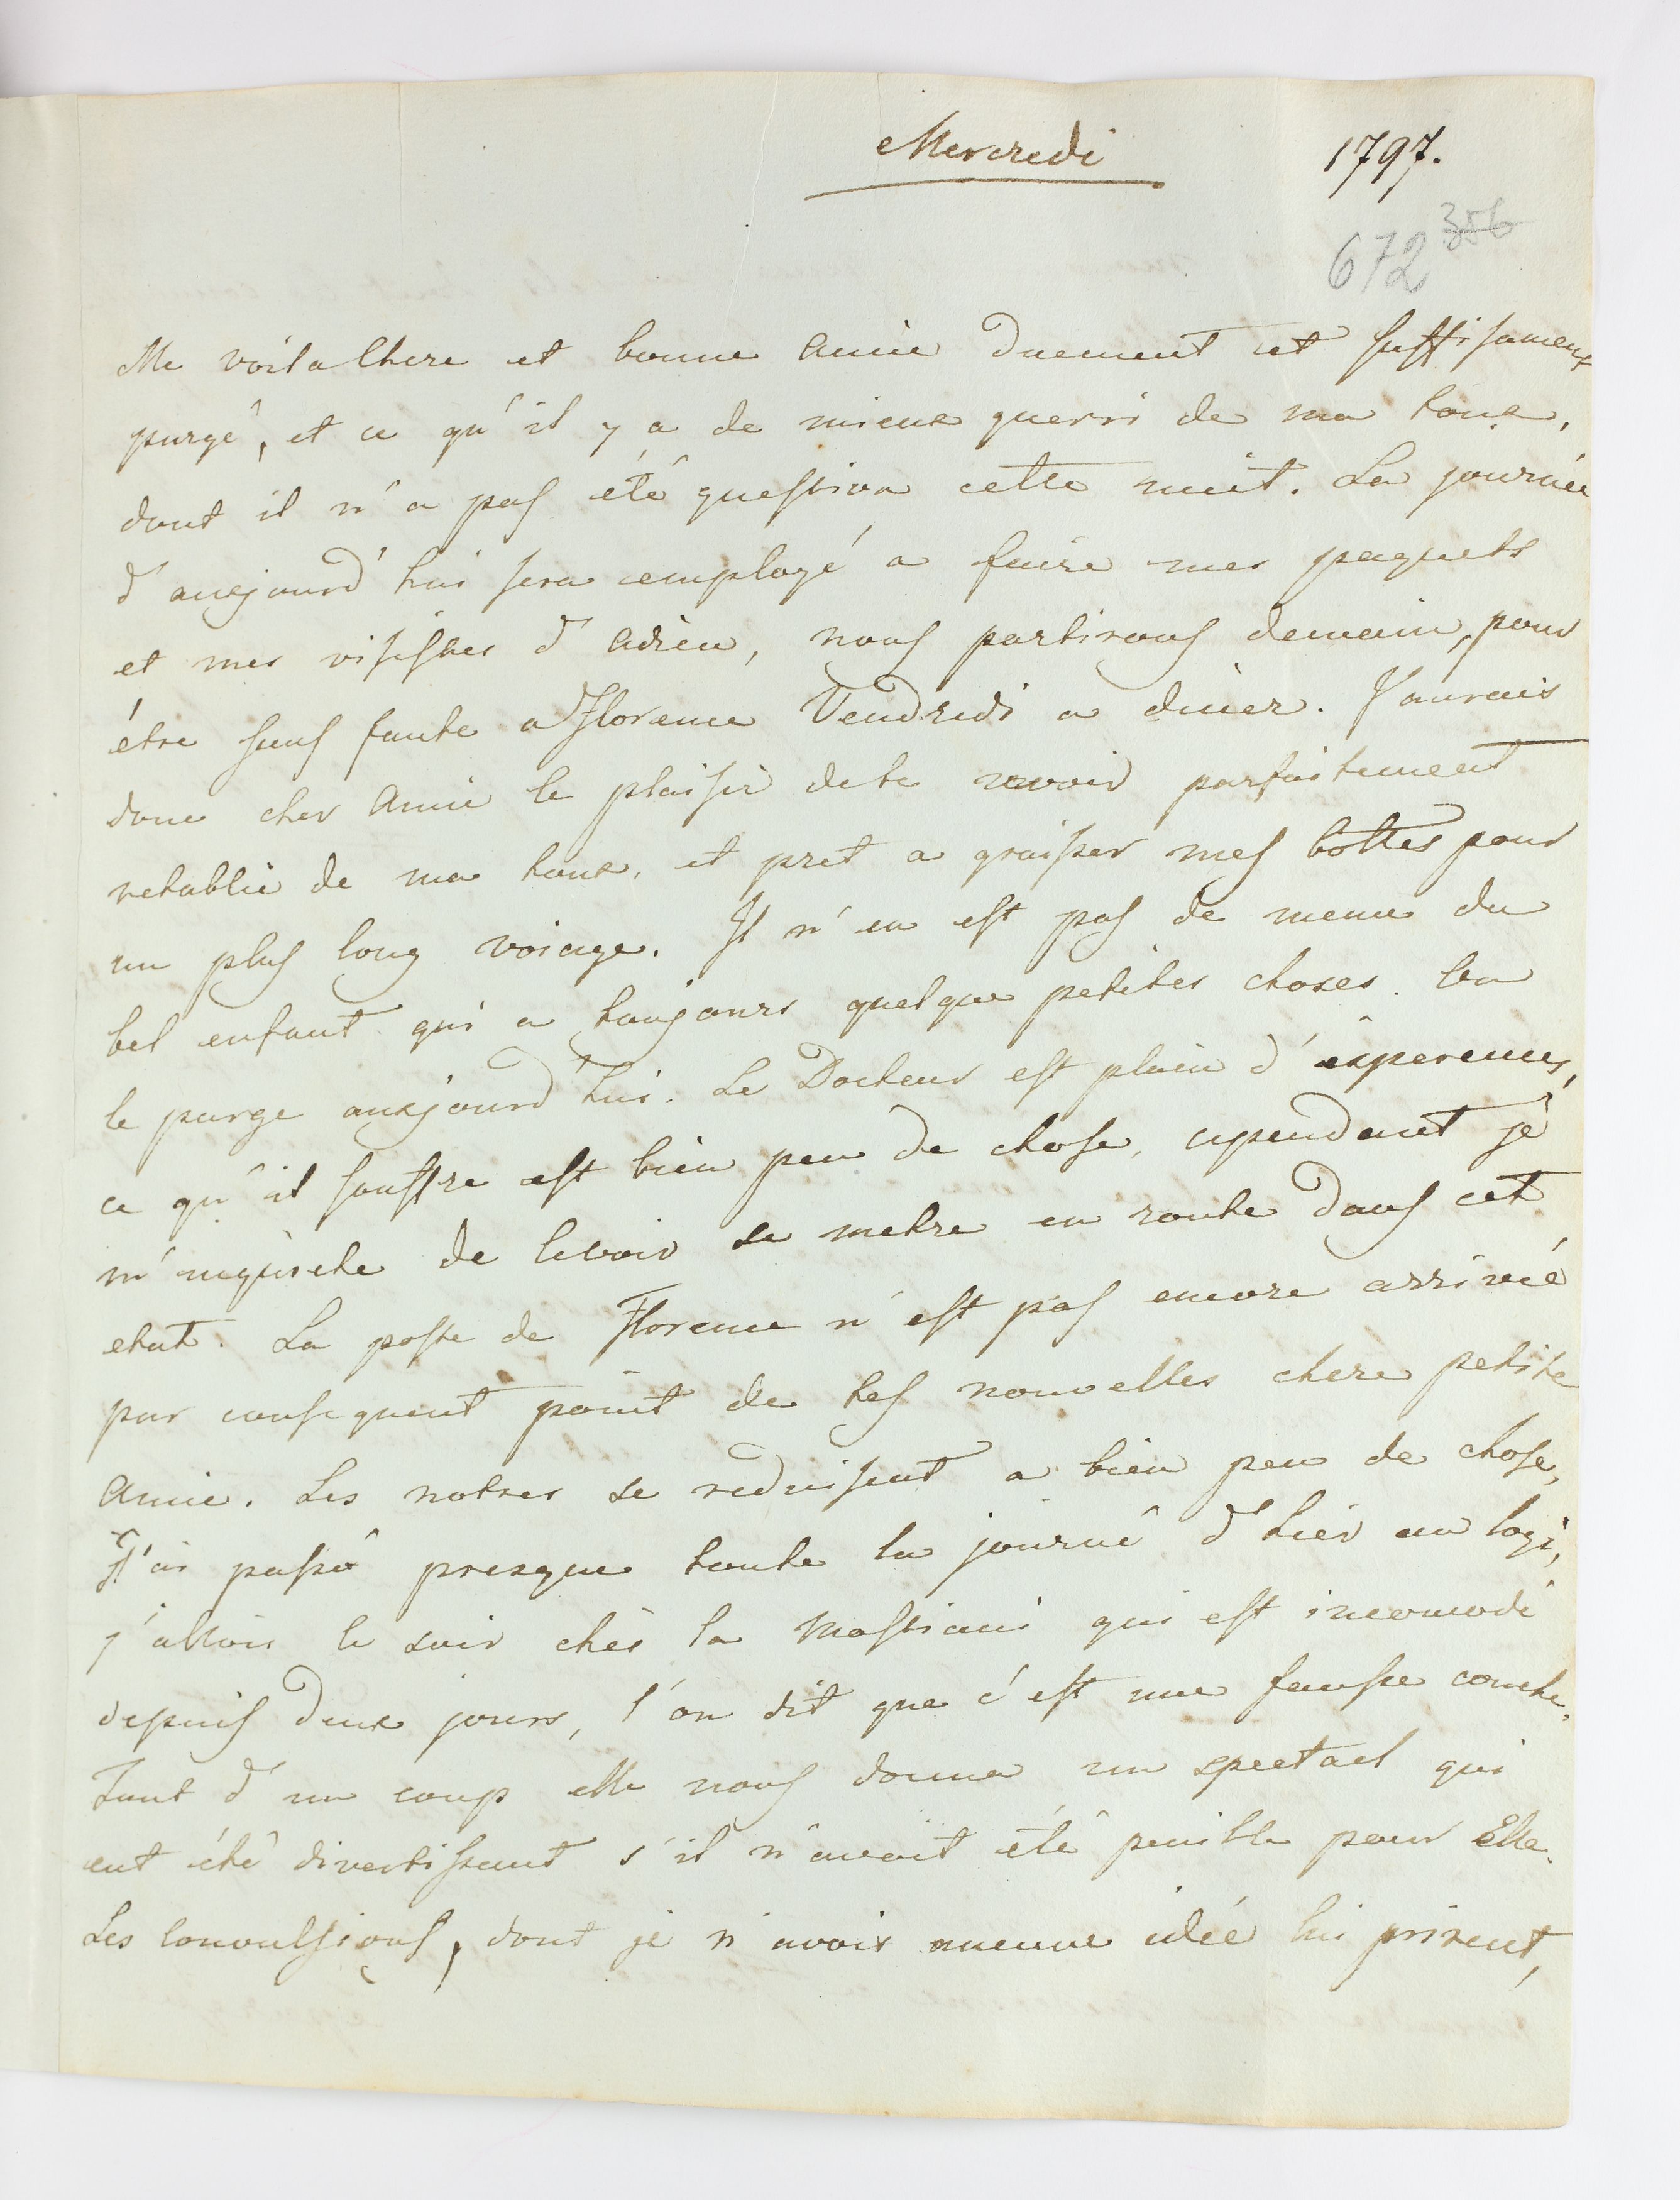 Mercredi 1797.
672 356
Me voila chere et bonne amie duement et suffisament
purgé, et ce qu'il y a de mieux guerri de ma toux,
dont il n'a pas été question cette nuit. La journée
d'auxjourd'hui sera employé a faire mes paquets
et mes visistes d'adieu, nous partirons demain, pour
être sans faute a Florence Vendredi a diner. J'aurais
donc cher amie le plaisir de te revoir parfaitement
retablie de ma toux, et pret a graisser mes bottes pour
un plus long voiage. Il n'en est pas de meme du
bel enfant qui a toujours quelque petites choses. On
le purge auxjourd'hui. Le Docteur est plein d'esperences,
ce qu'il souffre est bien peu de chose, cependant je
m'inquiete de le voir se metre en route dans cet
etat. La poste de Florence n'est pas encore arrivée
par consequent point de tes nouvelles chere petite
amie. Les notres se reduisent a bien peu de chose,
J'ai passé presque toute la journé d'hier au logi,
j'allois le soir chés la Mastiani qui est incomodé
depuis deux jours, l'on dit que c'est une fausse couche.
Tout d'un coup elle nous donna un spectacl qui
eut été divertissant s'il n'avait été penible pour Elle.
Les convulsions, dont je n'avois aucune idée lui prirent,